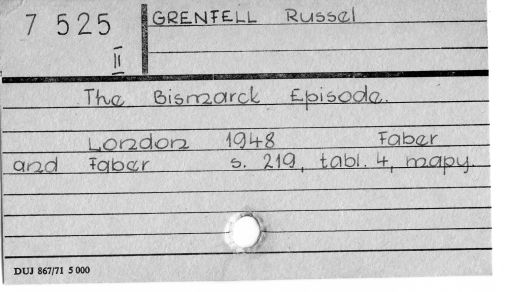 7 525 GRENFELL Russel
II
The Bismarck Episode.
London 1948 Faber
and Faber s. 219, tabl. 4, mapy.
DUJ 867/71 5 000